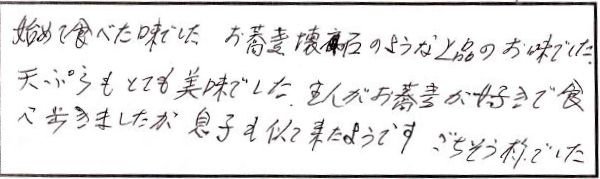 始めて食べた味でした お蕎麦懐石のような上品のお味でした
天ぷらもとても美味でした、主人がお蕎麦が好きで食
べ歩きましたが 息子も似て来たようです ごちそう様でした